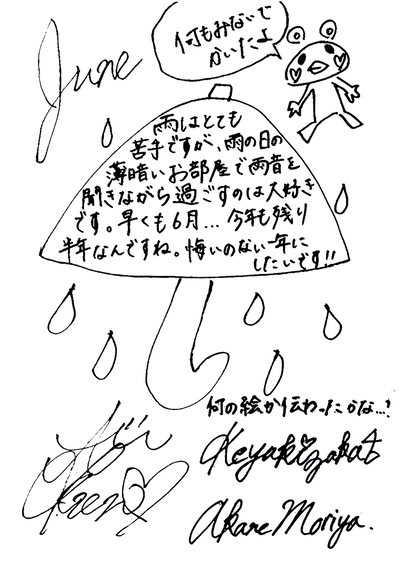 June
何もみないで
かいたよ
雨はとても
苦手ですが、雨の日の
薄暗いお部屋で雨音を
聞きながら過ごすのは大好き
です。早くも6月...今年も残り
半年なんですね。悔いのない一年に
したいです!!
何の絵か伝わったかな...!
Keyakizaka46
Akane Moriya.